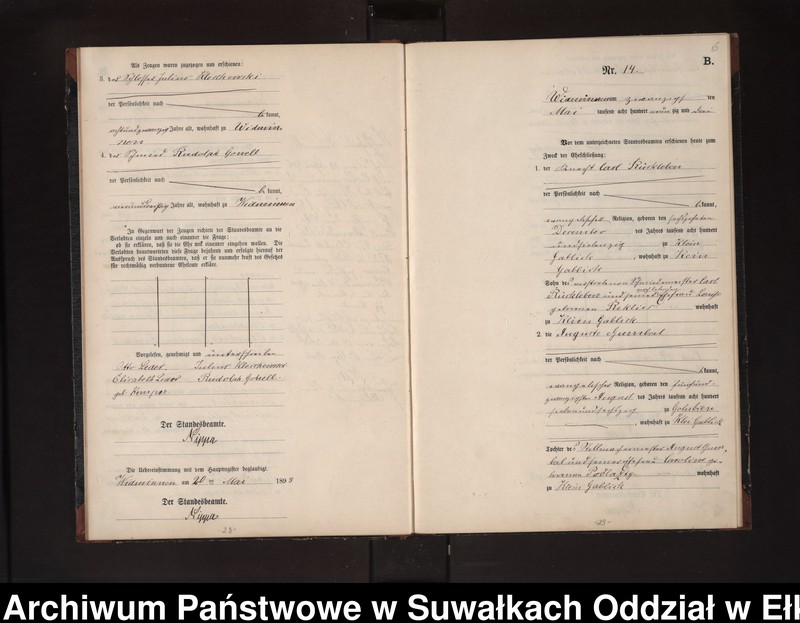 Als Zeugen waren zugezogen und erschienen:
3. der Schlosser Julius Kleschewski
der Persönlichkeit nach
bekannt,
achtundzwanzig Jahre alt, wohnhaft zu Widmin-
nen
4. der Schmied Rudolph Gorell
der Persönlichkeit nach
bekannt,
Jahre alt, wohnhaft zu Widminnen
In Gegenwart der Zeugen richtete der Standesbeamte an die
Verlobten einzeln und nach einander die Frage:
ob sie erklären, daß sie die Ehe mit einander eingehen wollen. Die
Verlobten beantworteten diese Frage bejahend und erfolgte hierauf der
Ausspruch des Standesbeamten, daß er sie nunmehr kraft des Gesetzes
für rechtmäßig verbundene Eheleute erkläre.
Vorgelesen, genehmigt und unterschrieben
Otto Leder Julius
Elisabeth Leder Rudolph Gorell
geb.
Der Standesbeamte.
Nippa
Die Uebereinstimmung mit dem Hauptregister beglaubigt.
Widminnen am 20 ten Mai 1893
Der Standesbeamte.
Nippa
-23-
6
B.
Nr. 14.
Widminnen am zwanzigsten
Mai tausend acht hundert neunzig und drei
Vor dem unterzeichneten Standesbeamten erschienen heute zum
Zweck der Eheschließung:
1. der Knecht Carl Rückleben
der Persönlichkeit nach
bekannt,
evangelischer Religion, geboren den sechszehnten
Dezember des Jahres tausend acht hundert
undsiebenzig zu Klein
Gablick, wohnhaft zu Klein
Gablick
Sohn des verstorbenen Schmiedemeister Carl
Rückleben und seiner Ehefrau Louise
geborenen wohnhaft
zu Klein Gablick
2. die Auguste
der Persönlichkeit nach
bekannt,
evangelischer Religion, geboren den fünfund-
zwanzigsten August des Jahres tausend acht hundert
siebenundsechzig zu
, wohnhaft zu Klein Gablick
Tochter des August
und seiner Ehefrau Caroline ge-
borenen wohnhaft
zu Klein Gablick
-23-
Archiwum Państwowe w Suwałkach Oddział w Ełk